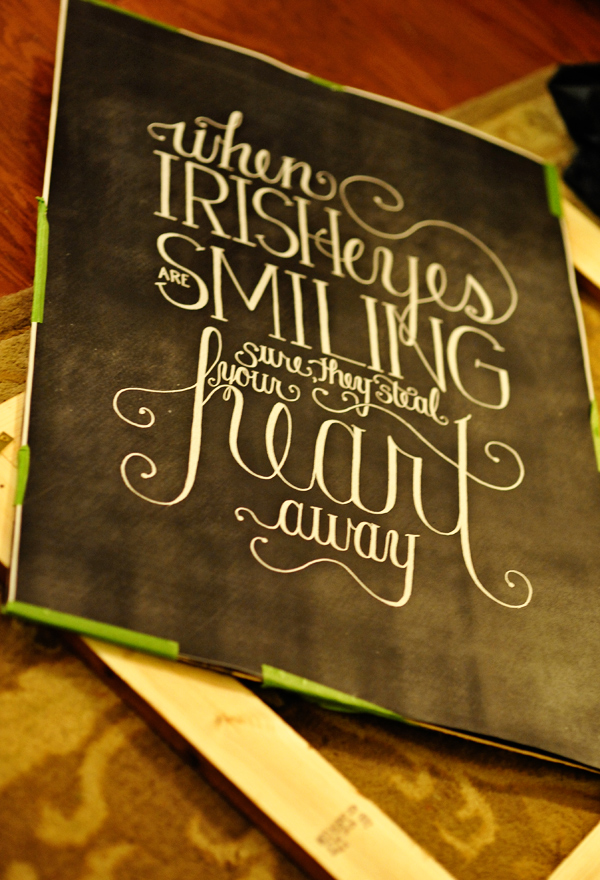 when
IRISH eyes
ARE SMILING
sure, they steal
your
heart
away